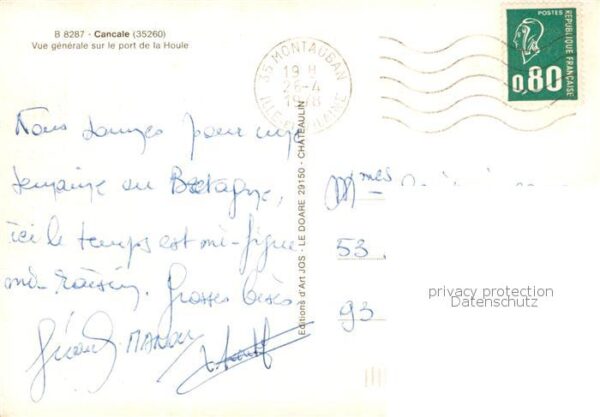 B 8287 - Cancale (35260)
Vue générale sur le port de la Houle
35 MONTAUBAN
19 H
26-4
1978
ILLE-ET-VILAINE
POSTES
REPUBLIQUE FRANÇAISE
0,80
Nous sommes pour une
semaine en Bretagne,
ici le temps est mi-figue
mi-raisin. Grosses bises
MANOU
Editions d'Art JOS - LE DOARE 29150 - CHATEAULIN
Mmes
53
93
privacy protection
Datenschutz